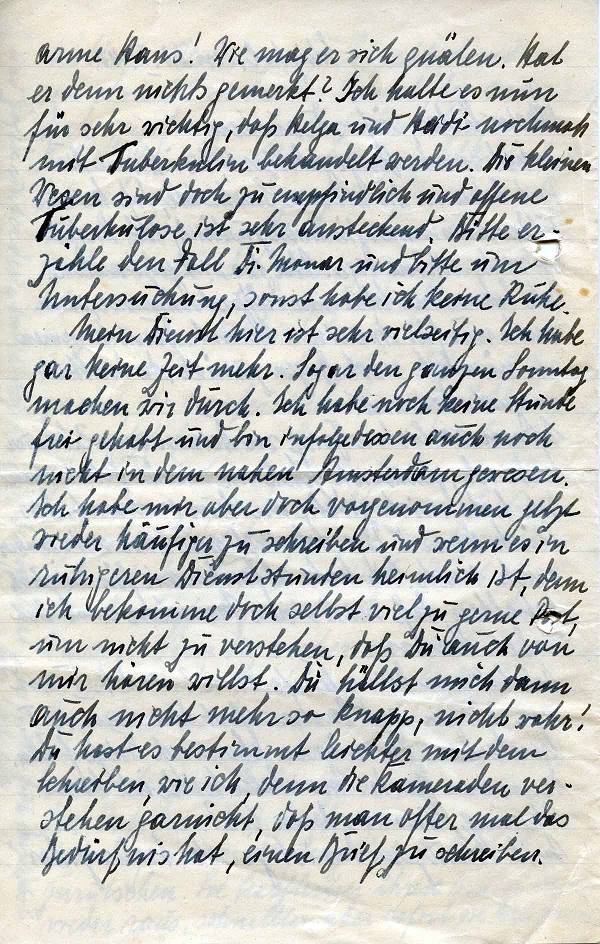 arme Hans! Wie mag er sich quälen. Hat
er denn nichts gemerkt? Ich halte es nun
für sehr wichtig, daß Helga und Heidi nochmals
mit Tuberkulin behandelt werden. Die kleinen
Wesen sind doch zu empfindlich und offene
Tuberkulose ist sehr ansteckend. Bitte er-
zähle den Fall Fr. und bitte um
Untersuchung, sonst habe ich keine Ruhe.
Mein Dienst hier ist sehr vielseitig. Ich habe
gar keine Zeit mehr. Sogar den ganzen Sonntag
machen wir durch. Ich habe noch keine Stunde
frei gehabt und bin infolgedessen auch noch
nicht in dem nahen Amsterdam gewesen.
Ich habe mir aber doch vorgenommen jetzt
wieder häufiger zu schreiben und wenn es in
ruhigeren Dienststunden heimlich ist, denn
ich bekomme doch selbst viel zu gerne Post,
um nicht zu verstehen, daß Du auch von
mir hören willst. Du hältst mich dann
auch nicht mehr so knapp, nicht wahr!
Du hast es bestimmt leichter mit dem
Schreiben, wie ich, denn die Kameraden ver-
stehen garnicht, daß man öfter mal das
Bedürfnis hat, einen Brief zu schreiben.